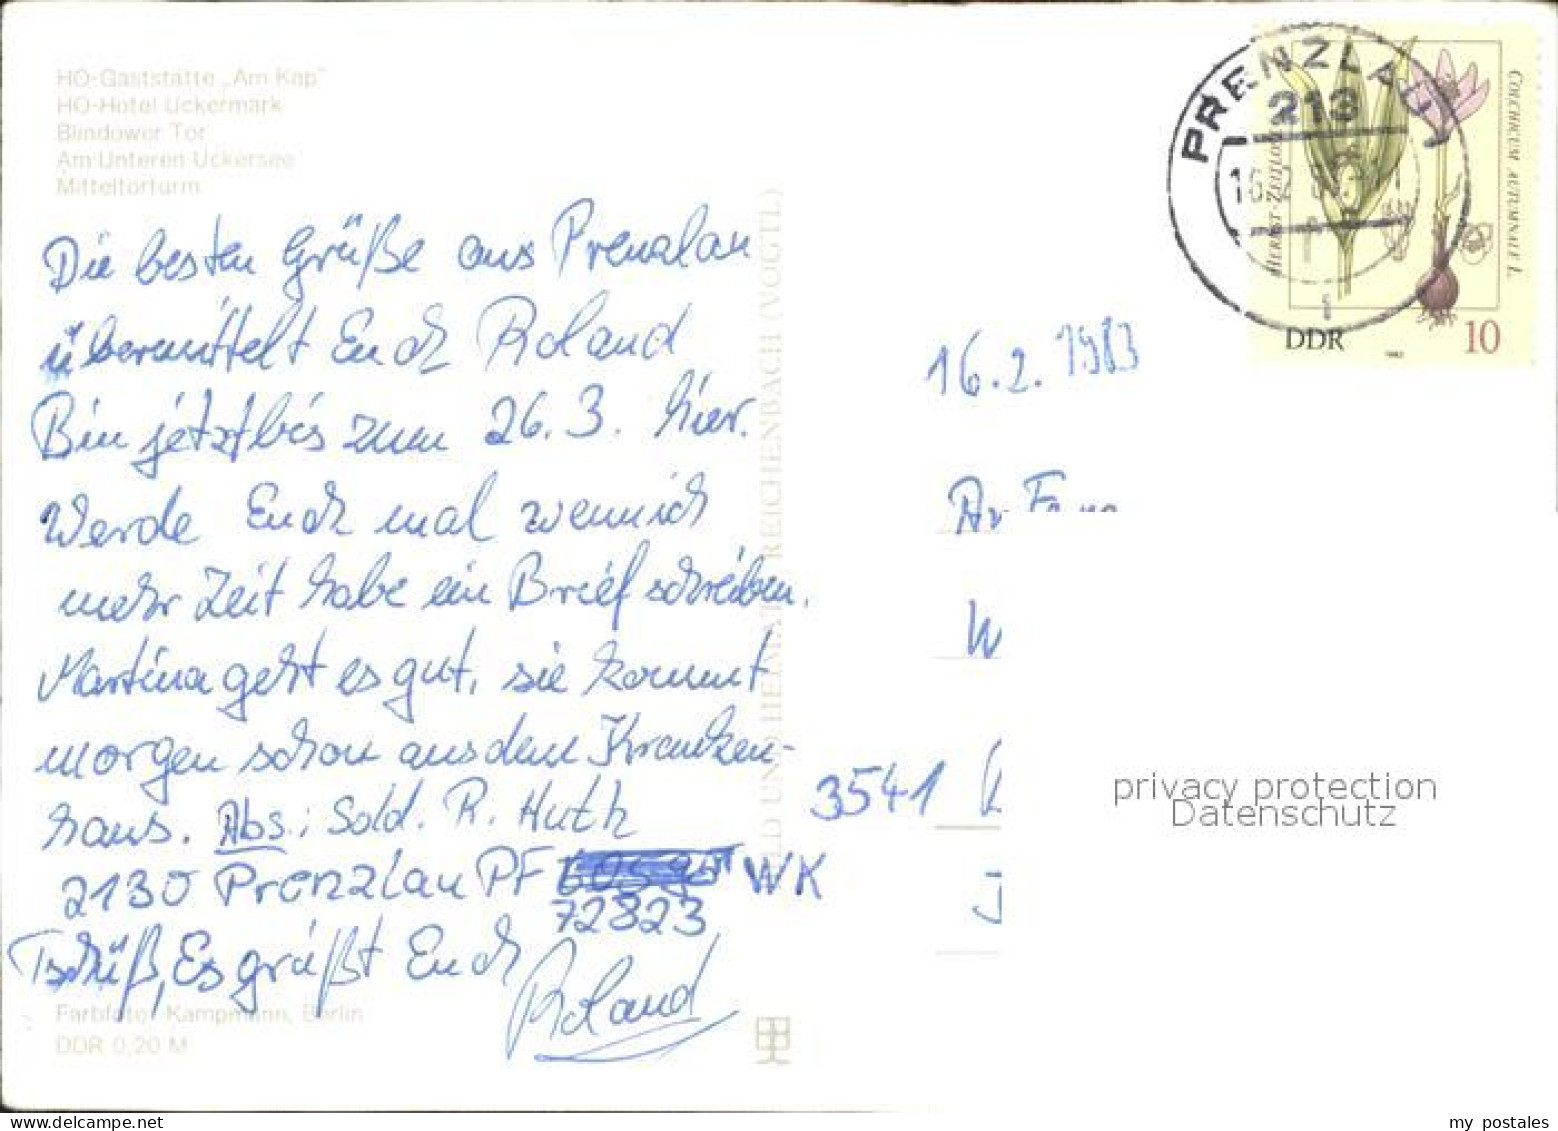 HO-Gaststätte „Am Kap"
HO-Hotel Uckermark
Blindower Tor
Am Unteren Uckersee
Mitteltorturm
Die besten Grüße aus Prenzlau
übermittelt Euch Roland
Bin jetzt bis zum 26.3. hier.
Werde Euch mal wenn ich
mehr Zeit habe ein Brief schreiben.
Martina geht es gut, sie kommt
morgen schon aus dem Kranken-
haus. Abs.: Sold. R. Huth
2130 Prenzlau PF WK
72823
Tschüß, Es grüßt Euch
Roland
Farbfoto: Kampmann, Berlin
DDR 0,20 M
BILD UND HEIMAT REICHENBACH (VOGTL)
PRENZLAU
213
HERBST-ZEITLOSE
COLCHICUM AUTUMNALE L.
DDR
10
1982
16.2.1983
An Fam
W
3541
J
privacy protection
Datenschutz
my postales